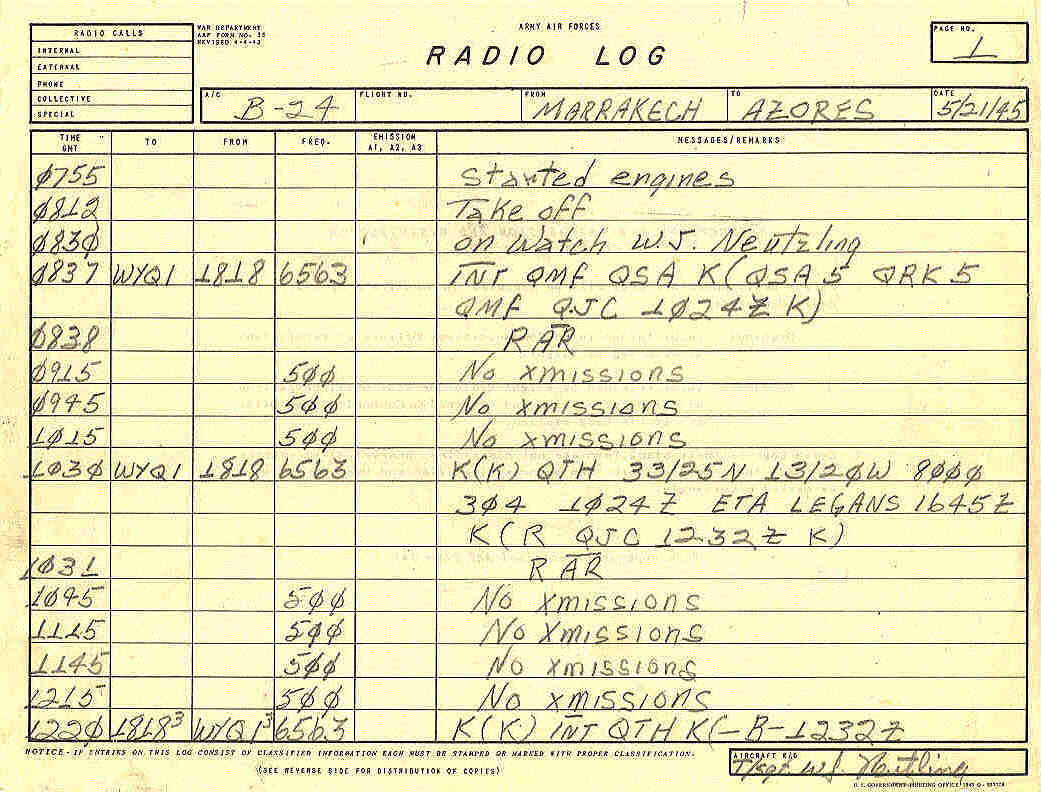 RADIO CALLS
INTERNAL
EXTERNAL
PHONE
COLLECTIVE
SPECIAL
WAR DEPARTMENT
AAF FORM NO. 35
REVISED 4-4-43
ARMY AIR FORCES
RADIO LOG
PAGE NO. 1
A/C B-24 FLIGHT NO. FROM MARRAKECH TO AZORES DATE 5/21/45
TIME GMT TO FROM FREQ. EMISSION A1, A2, A3 MESSAGES/REMARKS
0755 Started engines
0812 Take off
0830 on watch W.J. Neutzling
0837 WYQ1 1818 6563 INT QMF QSA K(QSA5 QRK5
QMF QJC 1024Z K)
0838 R AR
0915 500 No xmissions
0945 500 No xmissions
1015 500 No xmissions
1030 WYQ1 1818 6563 K(K) QTH 33/25N 13/20W 8000
304 1024Z ETA LEGANS 1645Z
K(R QJC 1232Z K)
1031 R AR
1045 500 No xmissions
1115 500 No xmissions
1145 500 No xmissions
1215 500 No xmissions
1220 1818³ WYQ1³ 6563 K(K) INT QTH K(-B-1232Z
NOTICE - IF ENTRIES ON THIS LOG CONSIST OF CLASSIFIED INFORMATION EACH MUST BE STAMPED OR MARKED WITH PROPER CLASSIFICATION.
(SEE REVERSE SIDE FOR DISTRIBUTION OF COPIES)
AIRCRAFT R/O
T/Sgt W.J. Neutzling
U. S. GOVERNMENT PRINTING OFFICE